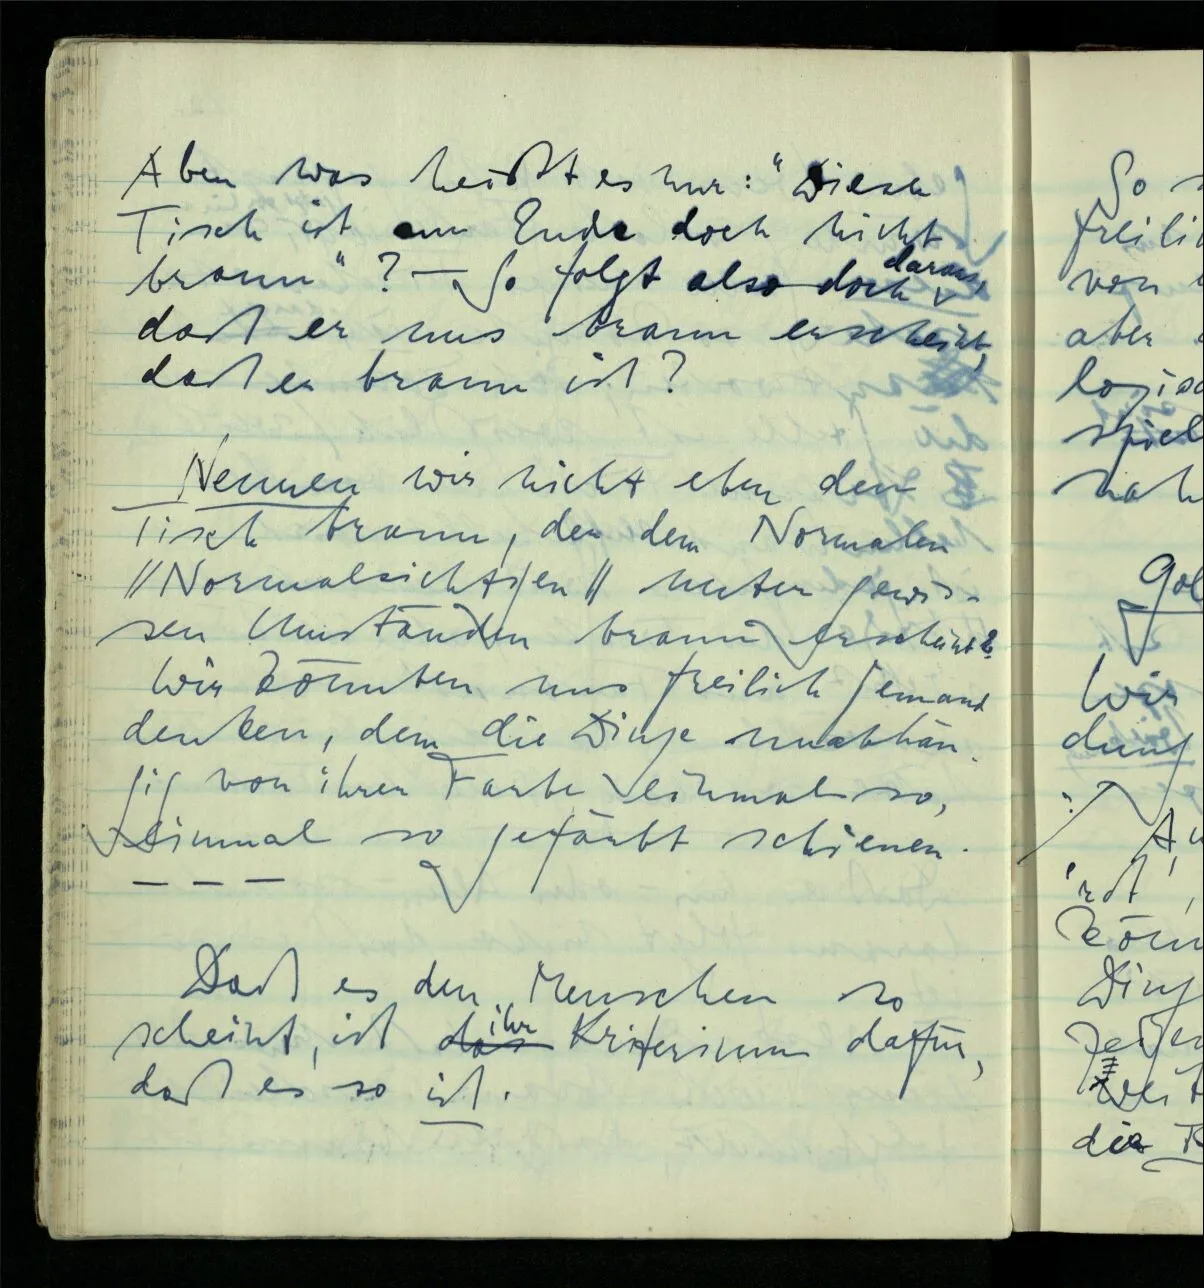 Aber was heißt es nur: "Dieser
Tisch ist am Ende doch nicht
braun" ? — So folgt also doch daraus,
daß er uns braun erscheint,
daß er braun ist?
Nennen wir nicht eben den
Tisch braun, der dem Normalen
//Normalsichtigen// unter gewis-
sen Umständen braun erscheint?
Wir könnten uns freilich jemand
denken, dem die Dinge unabhän-
gig von ihrer Farbe einmal so,
einmal so gefärbt schienen.
— — —
Daß es den Menschen so
scheint, ist das ihr Kriterium dafür,
daß es so ist.
So
von
aber
logis
spiel
nah
Wir
dung
'rot',
Ding
die